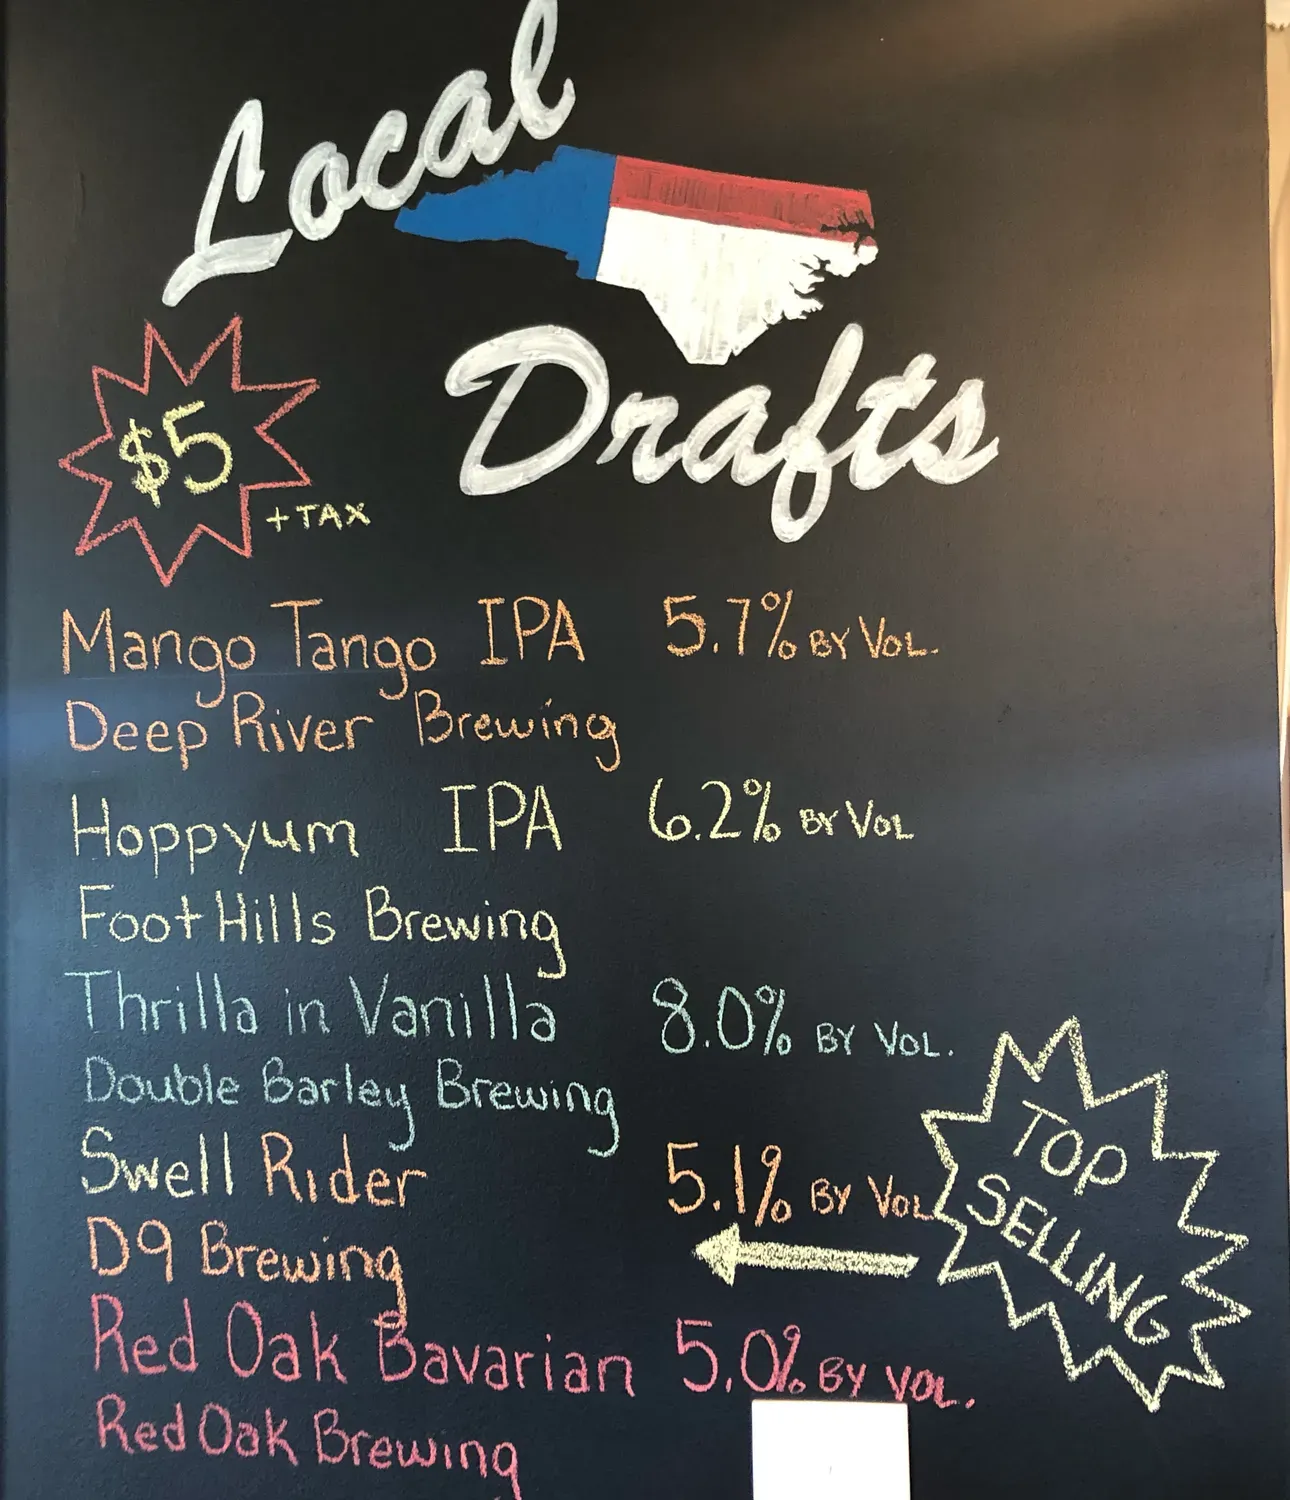 Local
Drafts
$5
+TAX
Mango Tango IPA 5.7% BY VOL.
Deep River Brewing
Hoppyum IPA 6.2% BY VOL
Foot Hills Brewing
Thrilla in Vanilla 8.0% BY VOL.
Double Barley Brewing
Swell Rider 5.1% BY VOL
D9 Brewing
TOP
SELLING
Red Oak Bavarian 5.0% BY VOL.
Red Oak Brewing